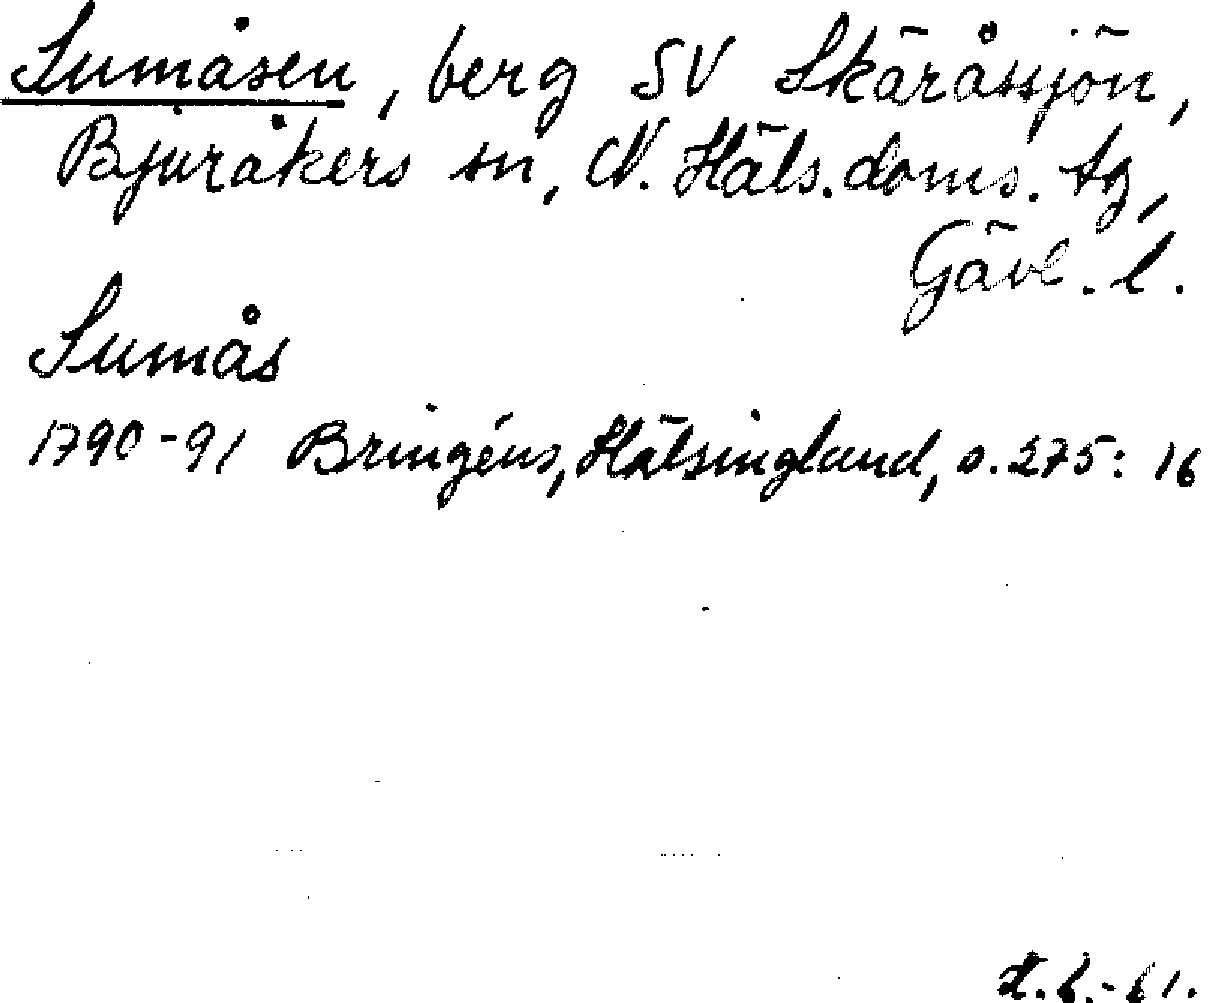 Sumåsen, berg SV Skäråssjön,
Bjuråkers sn, N. Häls. doms. tg,
Gävl. l.
Sumås
1790-91 Bringéus, Hälsingland, s. 275: 16